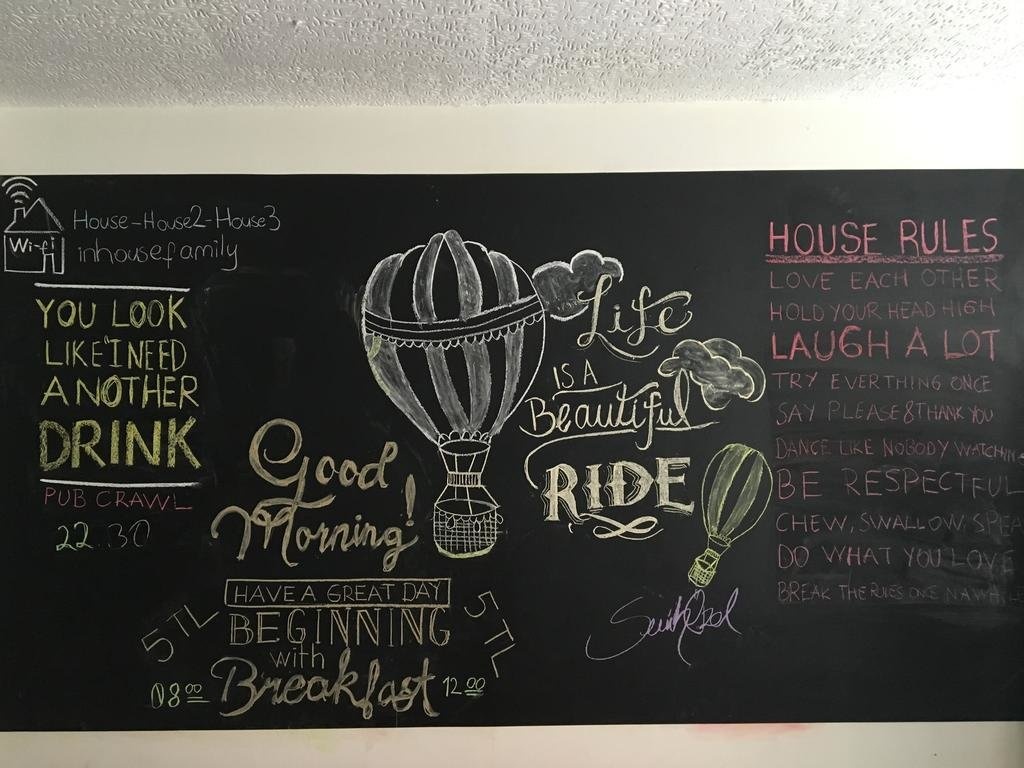 Wi-fi
House-House2-House3
inhousefamily
YOU LOOK
LIKE I NEED
ANOTHER
DRINK
PUB CRAWL
22.30
Good
Morning!
HAVE A GREAT DAY
BEGINNING
with
Breakfast
5 TL
5 TL
08 00
12 00
Life
IS A
Beautiful
RIDE
HOUSE RULES
LOVE EACH OTHER
HOLD YOUR HEAD HIGH
LAUGH A LOT
TRY EVERTHING ONCE
SAY PLEASE & THANK YOU
DANCE LIKE NOBODY WATCHIN
BE RESPECTFUL
CHEW, SWALLOW, SPEA
DO WHAT YOU LOVE
BREAK THE RULES ONCE N A WHILE